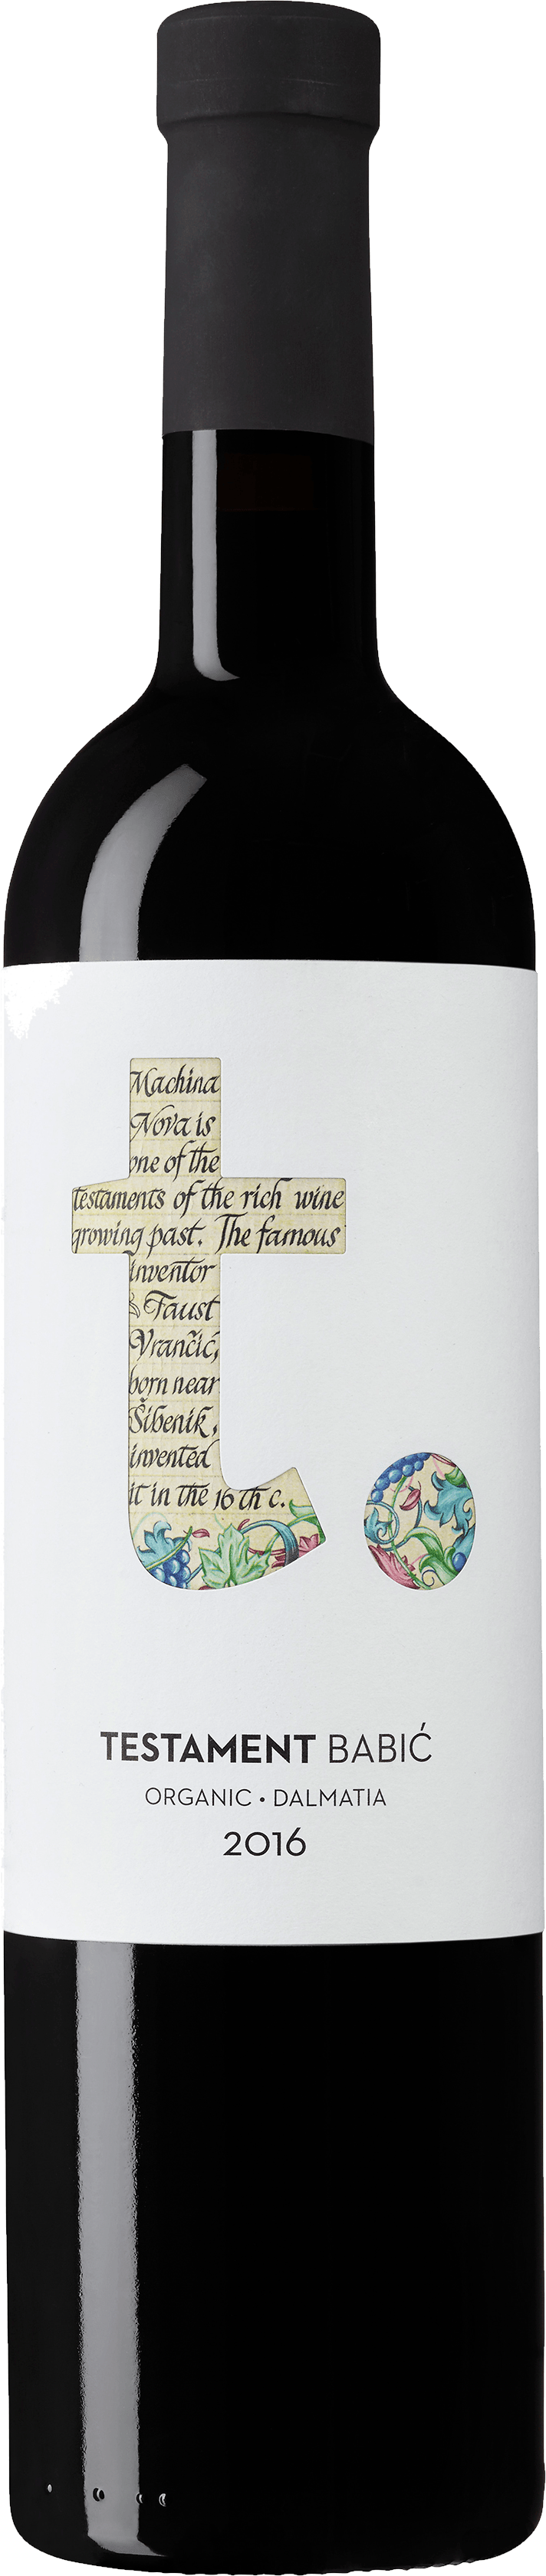 Machina
Nova is
one of the
testaments of the rich wine
growing past. The famous
inventor
Faust
Vrančić,
born near
Šibenik,
invented
it in the 16 th c.
t.
TESTAMENT BABIĆ
ORGANIC • DALMATIA
2016